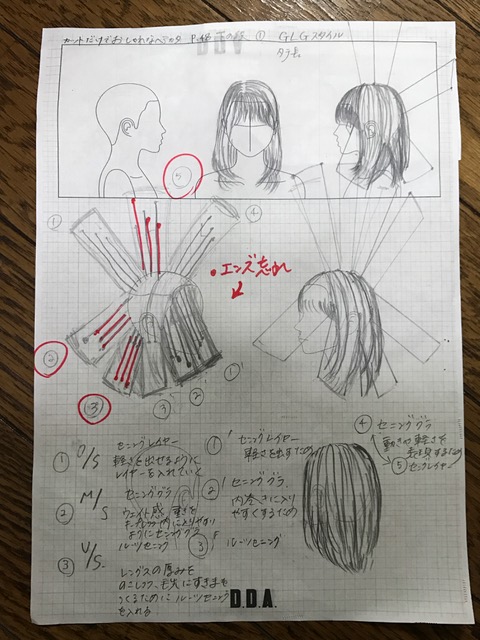 カットだけでおしゃれなヘアの P46 下の段 ① GLGスタイル
タテ長
D.D.A
⑤
①
④
•エンズ忘れ
②
③
③'
②'
①'
① O/S セニングレイヤー
軽さを出せるように
レイヤーを入れていく
② M/S セニンググラ
ウェイト感
ようにセニンググラ
ルーツセニング
③ U/S.
レングスの厚みを
のこしつつ、毛先にすきまを
つくるためにルーツセニング
を入れる
①' セニングレイヤー
軽さを出すため
②' セニンググラ、
内巻きに入り
やすくするため
③' ルーツセニング
④ セニンググラ
動きや軽さを
表現するため
⑤ セニングレイヤー
D.D.A.